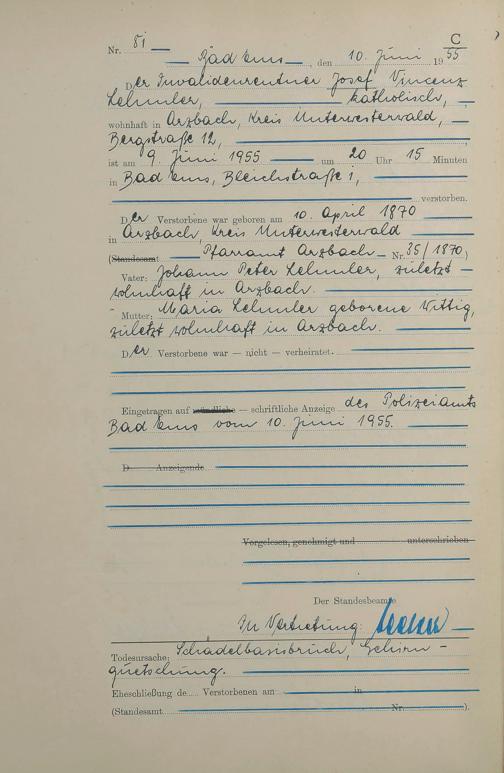 C
Nr. 81
Bad Ems, den 10. Juni 1955
Der Invalidenrentner Josef Vincenz
Lehmler, katholisch,
wohnhaft in Arzbach, Kreis Unterwesterwald,
Bergstraße 12,
ist am 9. Juni 1955 um 20 Uhr 15 Minuten
in Bad Ems, Bleichstraße 1,
verstorben.
Der Verstorbene war geboren am 10. April 1870
in Arzbach, Kreis Unterwesterwald
(Standesamt Pfarramt Arzbach Nr. 35/1870)
Vater: Johann Peter Lehmler, zuletzt
wohnhaft in Arzbach.
Mutter: Maria Lehmler geborene Wittig,
zuletzt wohnhaft in Arzbach.
Der Verstorbene war — nicht — verheiratet.
Eingetragen auf mündliche — schriftliche Anzeige des Polizeiamts
Bad Ems vom 10. Juni 1955.
D Anzeigende
Vorgelesen, genehmigt und unterschrieben
Der Standesbeamte
In Vertretung:
Todesursache: Schädelbasisbruch, Gehirn-
quetschung.
Eheschließung de.... Verstorbenen am in
(Standesamt Nr. ).